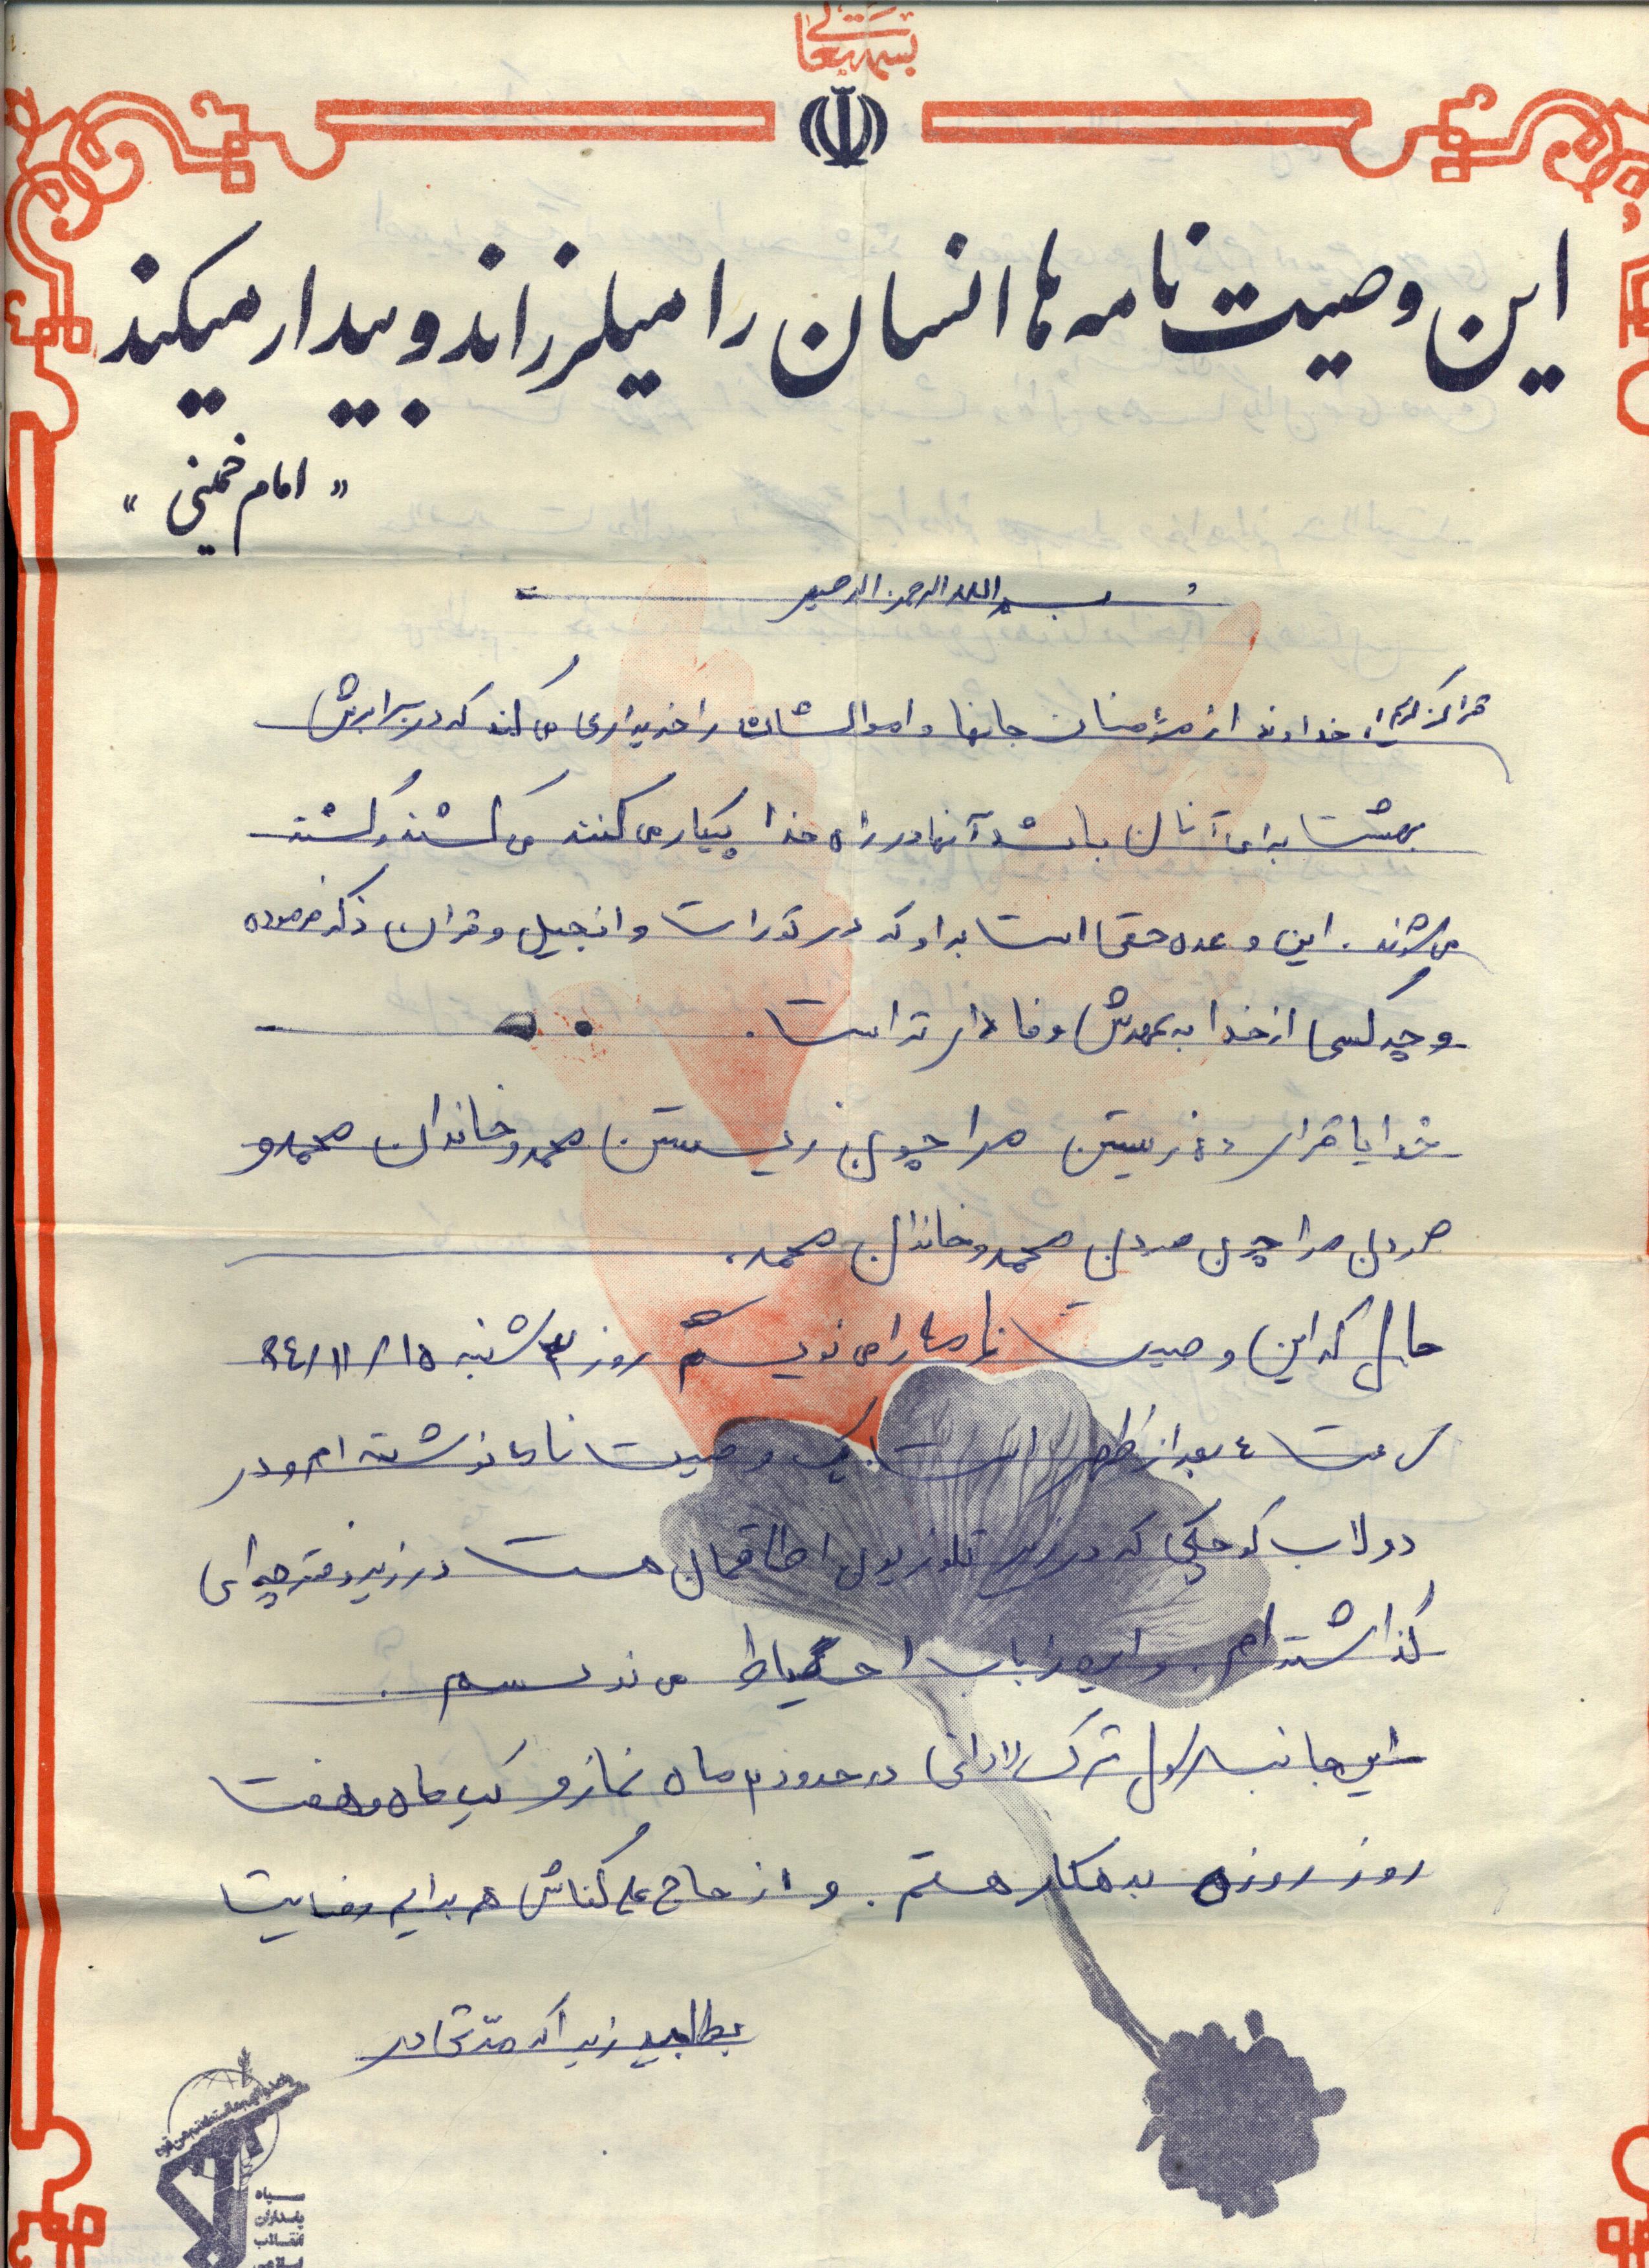 بسمه‌تعالی
این وصیت نامه ها انسان را میلرزاند و بیدار میکند
« امام خمینی »
بسم الله الرحمن الرحیم
قرآن کریم: خداوند از مؤمنان جانها و اموالشان را خریداری می کند که در برابرش
بهشت برای آنان باشد آنها در راه خدا پیکار می کنند می کشند و کشته
می شوند. این وعده حقی است بر او که در تورات و انجیل و قران ذکر فرموده
و چه کسی از خدا به عهدش وفادار تر است.
خدایا قرار ده زیستن مرا چون زیستن محمد و خاندان محمد و
مردن مرا چون مردن محمد و خاندان محمد.
حال که این وصیت نامه را می نویسم روز ۳ شنبه ۱۵ / ۱۱ / ۶۴
ساعت ٤ بعد از ظهر است. یک وصیت نامه نوشته ام و در
دولاب کوچکی که در زیر تلوزیون اطاقمان هست در زیر دفترچه ای
گذاشته ام. و این از باب احتیاط می نویسم.
این جانب رسول ترک لادانی در حدود ۳ ماه نماز و یک ماه و هفت
روز روزه بدهکار هستم. و از حاج علی کفاش هم برایم رضایت
بطلبید زیرا که مدتی در
سپاه
پاسداران
انقلاب
اسلامی